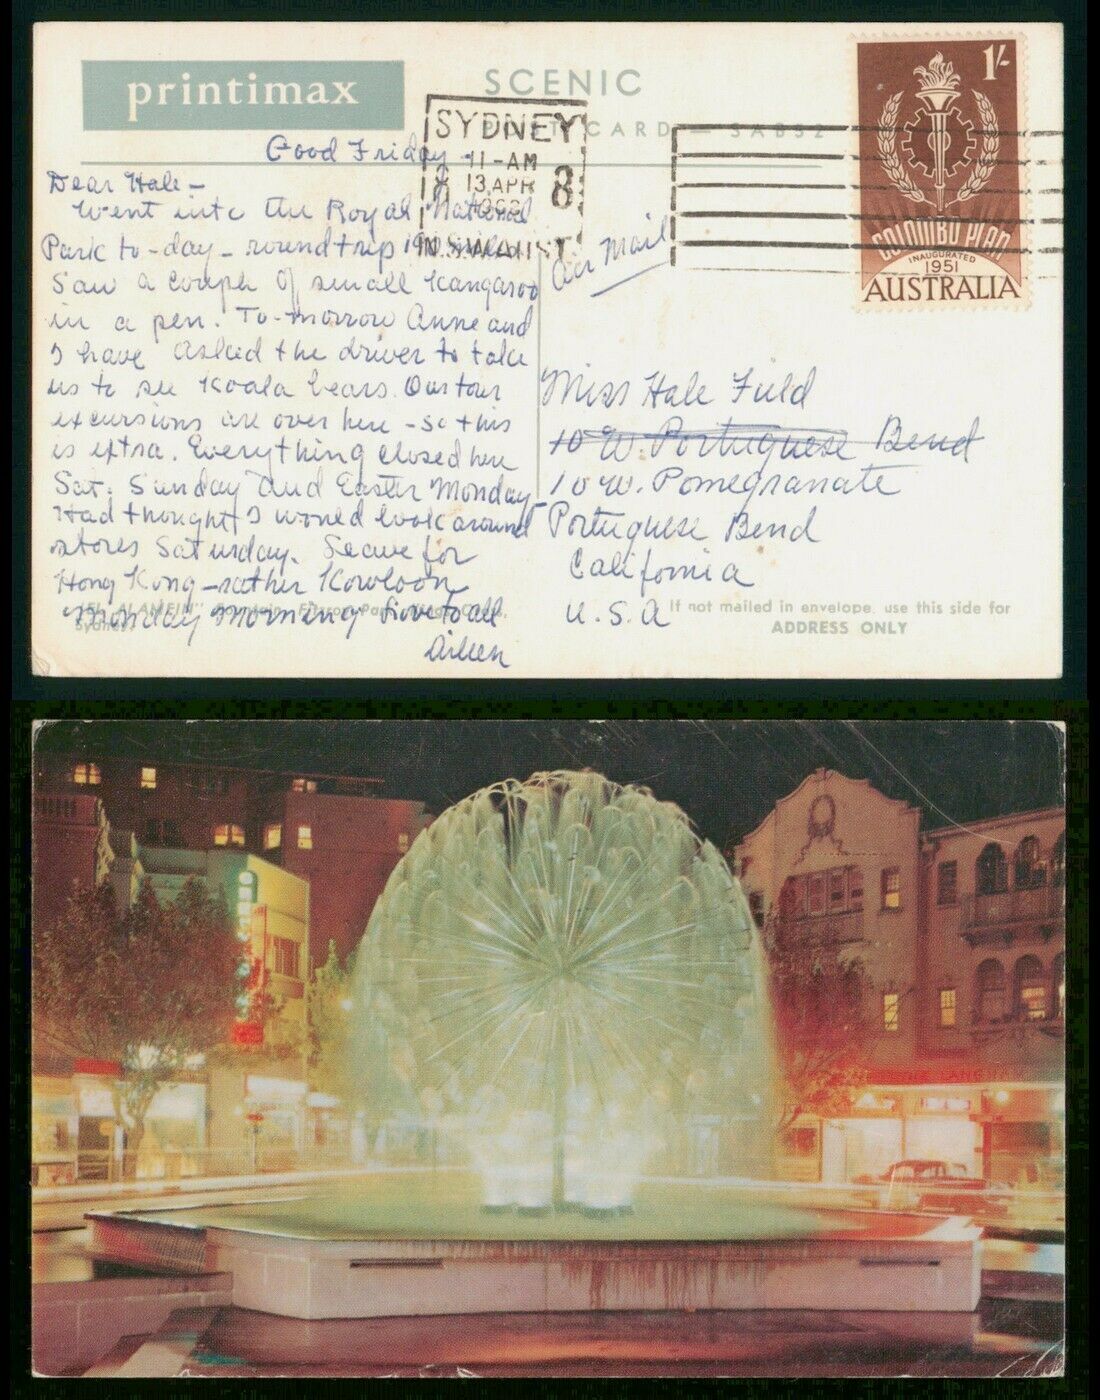 printimax
SCENIC
POST CARD — SAB52
SYDNEY
11-AM
13 APR
8
N.S.W. AUST
1/-
COLOMBO PLAN
INAUGURATED
1951
AUSTRALIA
Good Friday -
Dear Hale -
Went into the Royal National
Park to-day - round trip miles
Saw a couple of small Kangaroo
in a pen. To-morrow Anne and
I have asked the driver to take
us to see Koala bears. Our tour
excursions are over here - so this
is extra. Everything closed here
Sat, Sunday and Easter Monday -
Had thought I would look around
stores Saturday. Leave for
Hong Kong - rather Kowloon
Monday Morning Love to all
Aileen
Air Mail
Miss Hale Field
10 W. Portuguese Bend
10 W. Pomegranate
Portuguese Bend
California
U.S.A
"EL ALAMEIN" Fountain, Fitzroy
Sydney.
If not mailed in envelope, use this side for
ADDRESS ONLY